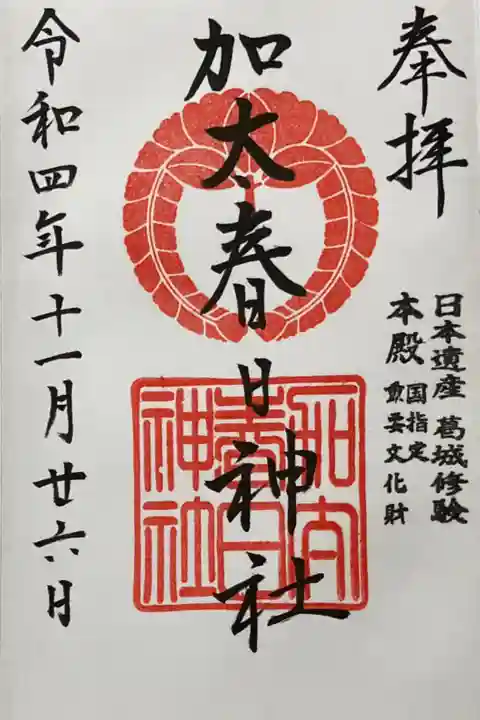 奉拝
日本遺産 葛城修験
本殿 国指定
重要文化財
加太春日神社
加太
春日
神社
令和四年十一月廿六日